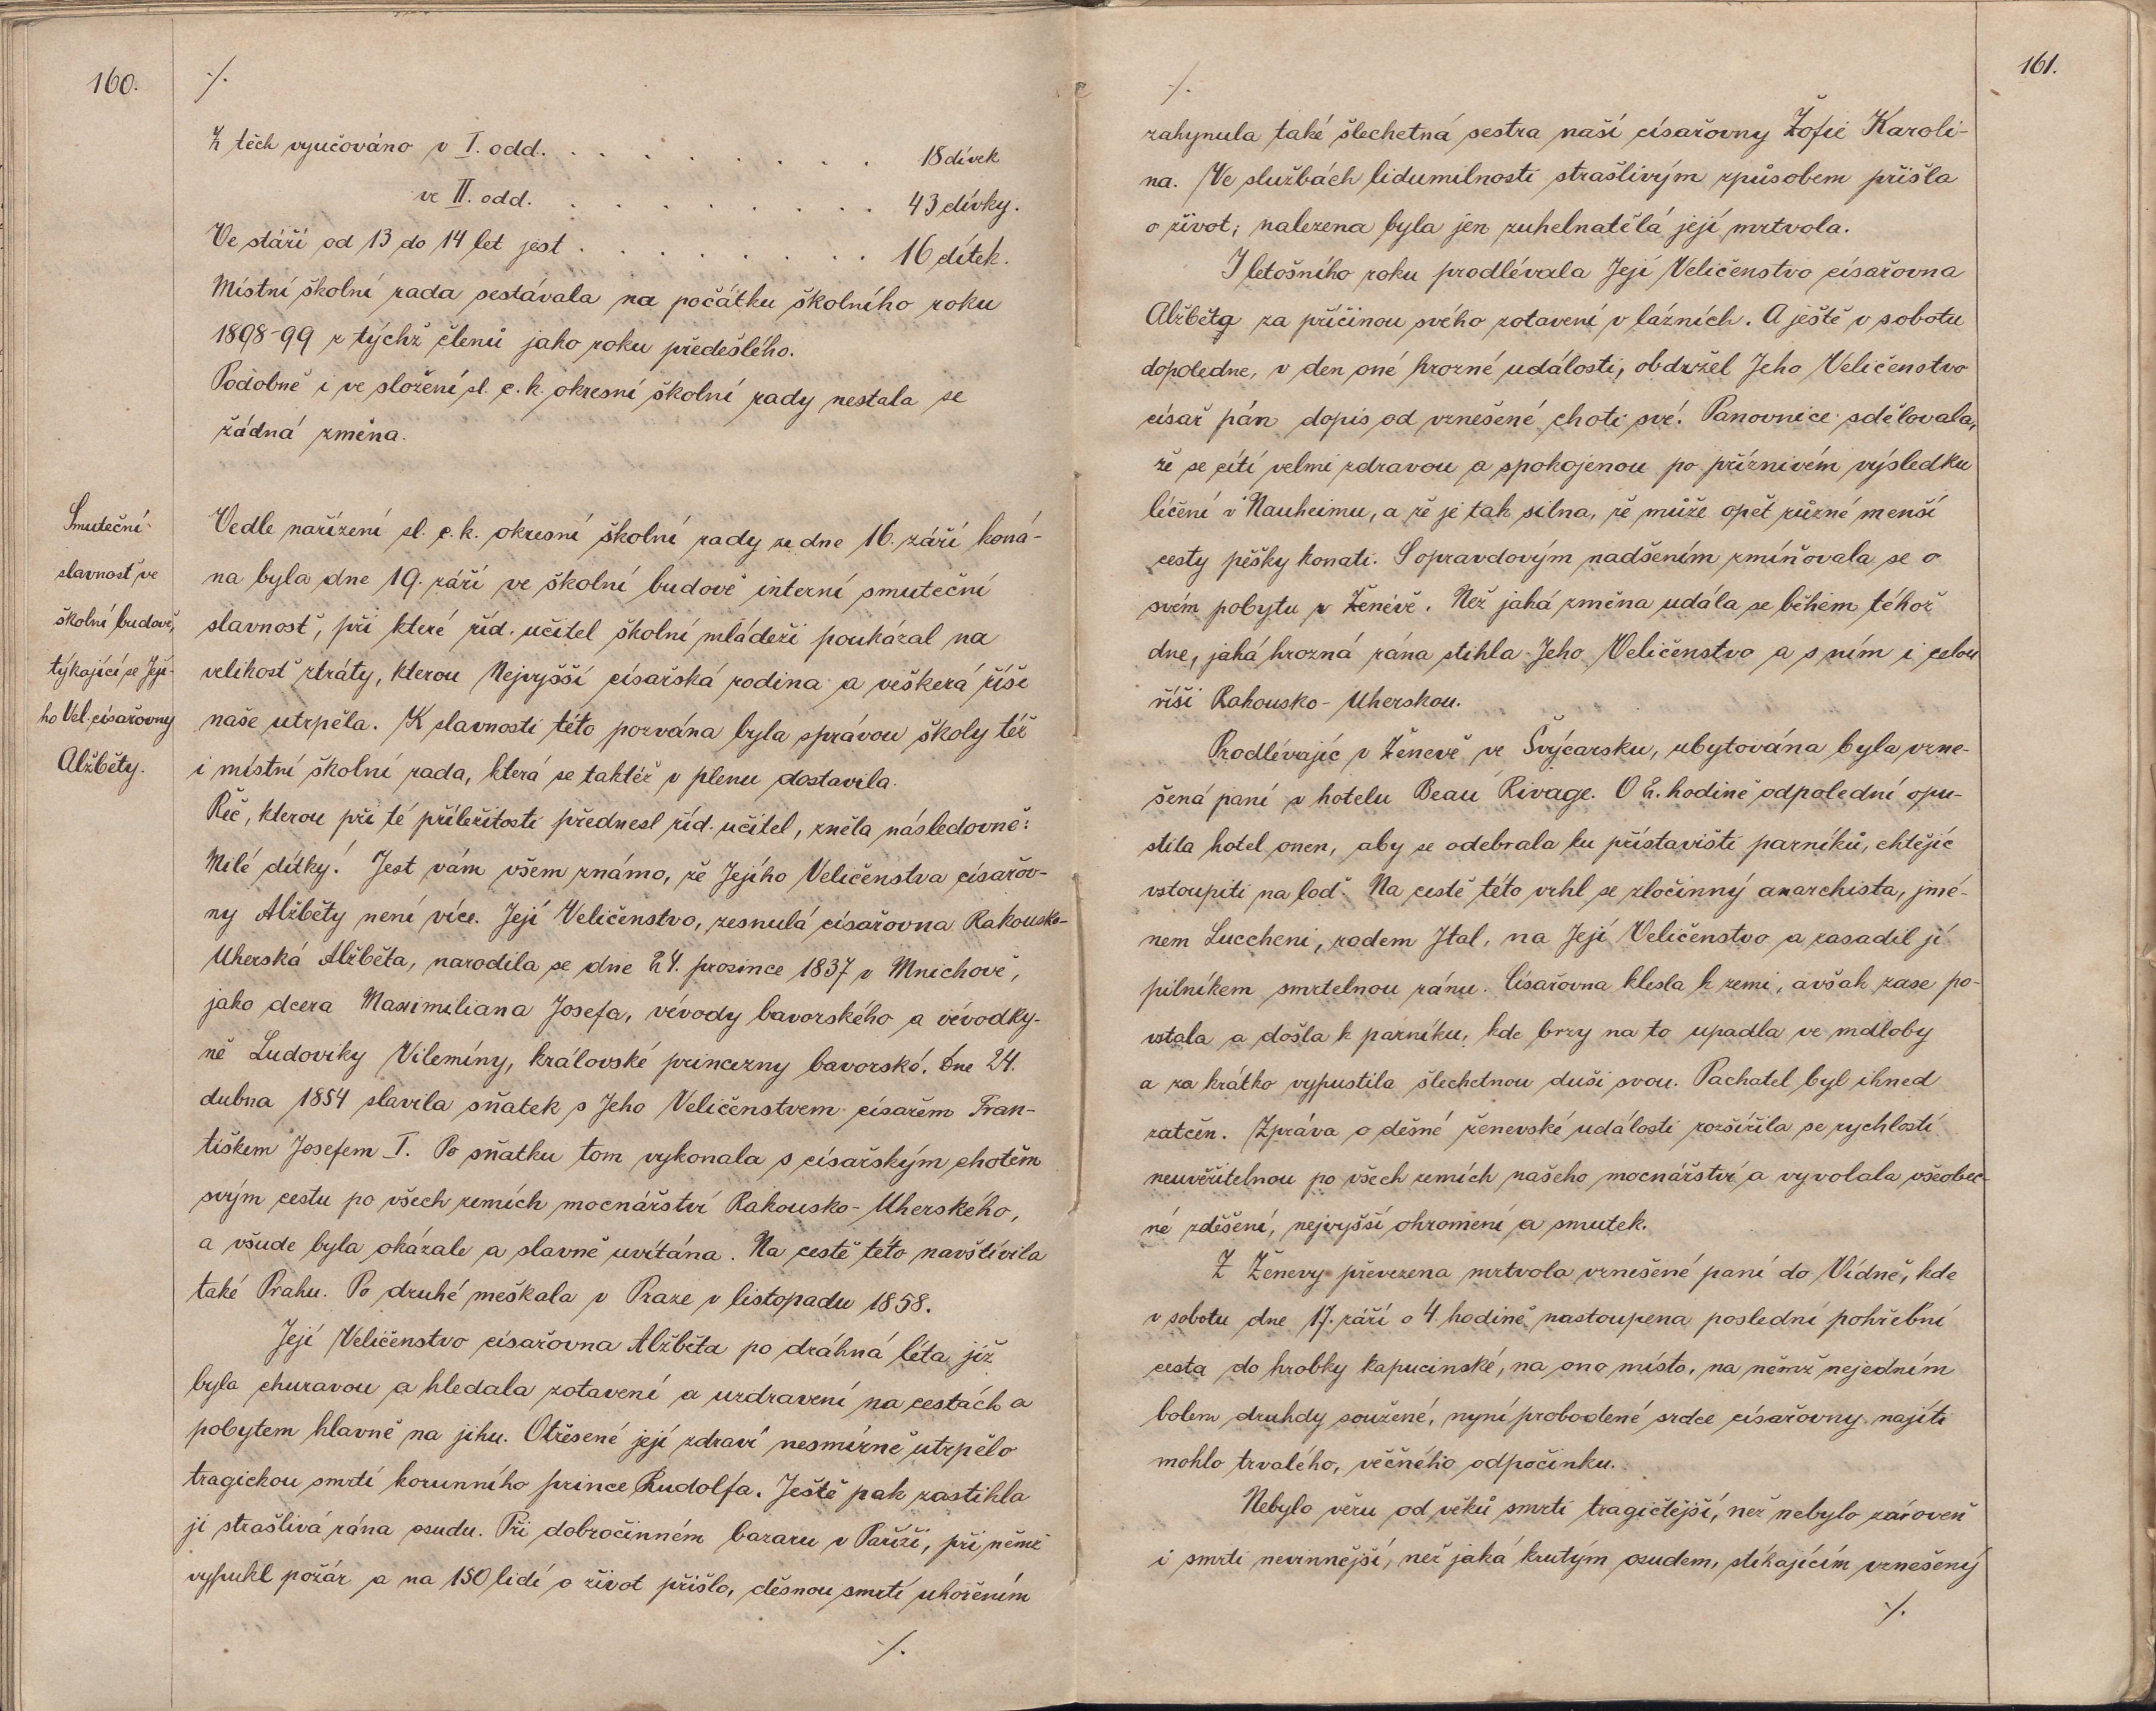 160.
⁒
Z těch vyučováno v I. odd. . . . . . . . . . 18 dívek
ve II. odd. . . . . . . . . . 43 dívky.
Ve stáří od 13 do 14 let jest . . . . . . . . . 16 dítek.
Místní školní rada sestávala na počátku školního roku
1898-99 z týchž členů jako roku předešlého.
Podobně i ve složení sl. c. k. okresní školní rady nestala se
žádná změna.
Smuteční
slavnosť ve
školní budově,
týkající se Její-
ho Vel. císařovny
Alžběty.
Vedle nařízení sl. c. k. okresní školní rady ze dne 16. září koná-
na byla dne 19. září ve školní budově interní smuteční
slavnosť, při které říd. učitel školní mládeži poukázal na
velikosť ztráty, kterou Nejvyšší císařská rodina a veškerá říše
naše utrpěla. K slavnosti této pozvána byla správou školy též
i místní školní rada, která se taktéž v plenu dostavila.
Řeč, kterou při té příležitosti přednesl říd. učitel, zněla následovně:
Milé dítky! Jest vám všem známo, že Jejího Veličenstva císařov-
ny Alžběty není více. Její Veličenstvo, zesnulá císařovna Rakousko-
Uherská Alžběta, narodila se dne 24. prosince 1837 v Mnichově,
jako dcera Maximiliana Josefa, vévody bavorského a vévodky-
ně Ludoviky Vilemíny, královské princezny bavorské. Dne 24.
dubna 1854 slavila sňatek s Jeho Veličenstvem císařem Fran-
tiškem Josefem I. Po sňatku tom vykonala s císařským chotěm
svým cestu po všech zemích mocnářství Rakousko-Uherského,
a všude byla okázale a slavně uvítána. Na cestě této navštívila
také Prahu. Po druhé meškala v Praze v listopadu 1858.
Její Veličenstvo císařovna Alžběta po dráhná léta již
byla churavou a hledala zotavení a uzdravení na cestách a
pobytem hlavně na jihu. Otřesené její zdraví nesmírně utrpělo
tragickou smrtí korunního prince Rudolfa. Ještě pak zastihla
ji strašlivá rána osudu. Při dobročinném bazaru v Paříži, při němž
vypukl požár a na 150 lidí o život přišlo, děsnou smrtí uhořením
⁒
161.
⁒
zahynula také šlechetná sestra naší císařovny Žofie Karoli-
na. Ve službách lidumilnosti strašlivým způsobem přišla
o život; nalezena byla jen zuhelnatělá její mrtvola.
I letošního roku prodlévala Její Veličenstvo císařovna
Alžběta za příčinou svého zotavení v lázních. A ještě v sobotu
dopoledne, v den oné hrozné události, obdržel Jeho Veličenstvo
císař pán dopis od vznešené choti své. Panovnice sdělovala,
že se cítí velmi zdravou a spokojenou po příznivém výsledku
léčení v Nauheimu, a že je tak silna, že může opět různé menší
cesty pěšky konati. S opravdovým nadšením zmiňovala se o
svém pobytu v Ženevě. Než jaká změna udála se během téhož
dne, jaká hrozná rána stihla Jeho Veličenstvo a s ním i celou
říši Rakousko-Uherskou.
Prodlévajíc v Ženevě ve Švýcarsku, ubytována byla vzne-
šená paní v hotelu Beau Rivage. O 2. hodině odpolední opu-
stila hotel onen, aby se odebrala ku přístavišti parníků, chtějíc
vstoupiti na loď. Na cestě této vrhl se zločinný anarchista, jmé-
nem Luccheni, rodem Ital, na Její Veličenstvo a zasadil jí
pilníkem smrtelnou ránu. Císařovna klesla k zemi, avšak zase po-
vstala a došla k parníku, kde brzy na to upadla ve mdloby
a za krátko vypustila šlechetnou duši svou. Pachatel byl ihned
zatčen. Zpráva o děsné ženevské události rozšířila se rychlostí
neuvěřitelnou po všech zemích našeho mocnářství a vyvolala všeobec-
né zděšení, nejvyšší ohromení a smutek.
Z Ženevy převezena mrtvola vznešené paní do Vídně, kde
v sobotu dne 17. září o 4. hodině nastoupena poslední pohřební
cesta do hrobky kapucinské, na ono místo, na němž nejedním
bolem druhdy soužené, nyní probodené srdce císařovny najíti
mohlo trvalého, věčného odpočinku.
Nebylo věru od věků smrti tragičtější, než nebylo zároveň
i smrti nevinnější, než jaká krutým osudem, stíhajícím vznešený
⁒